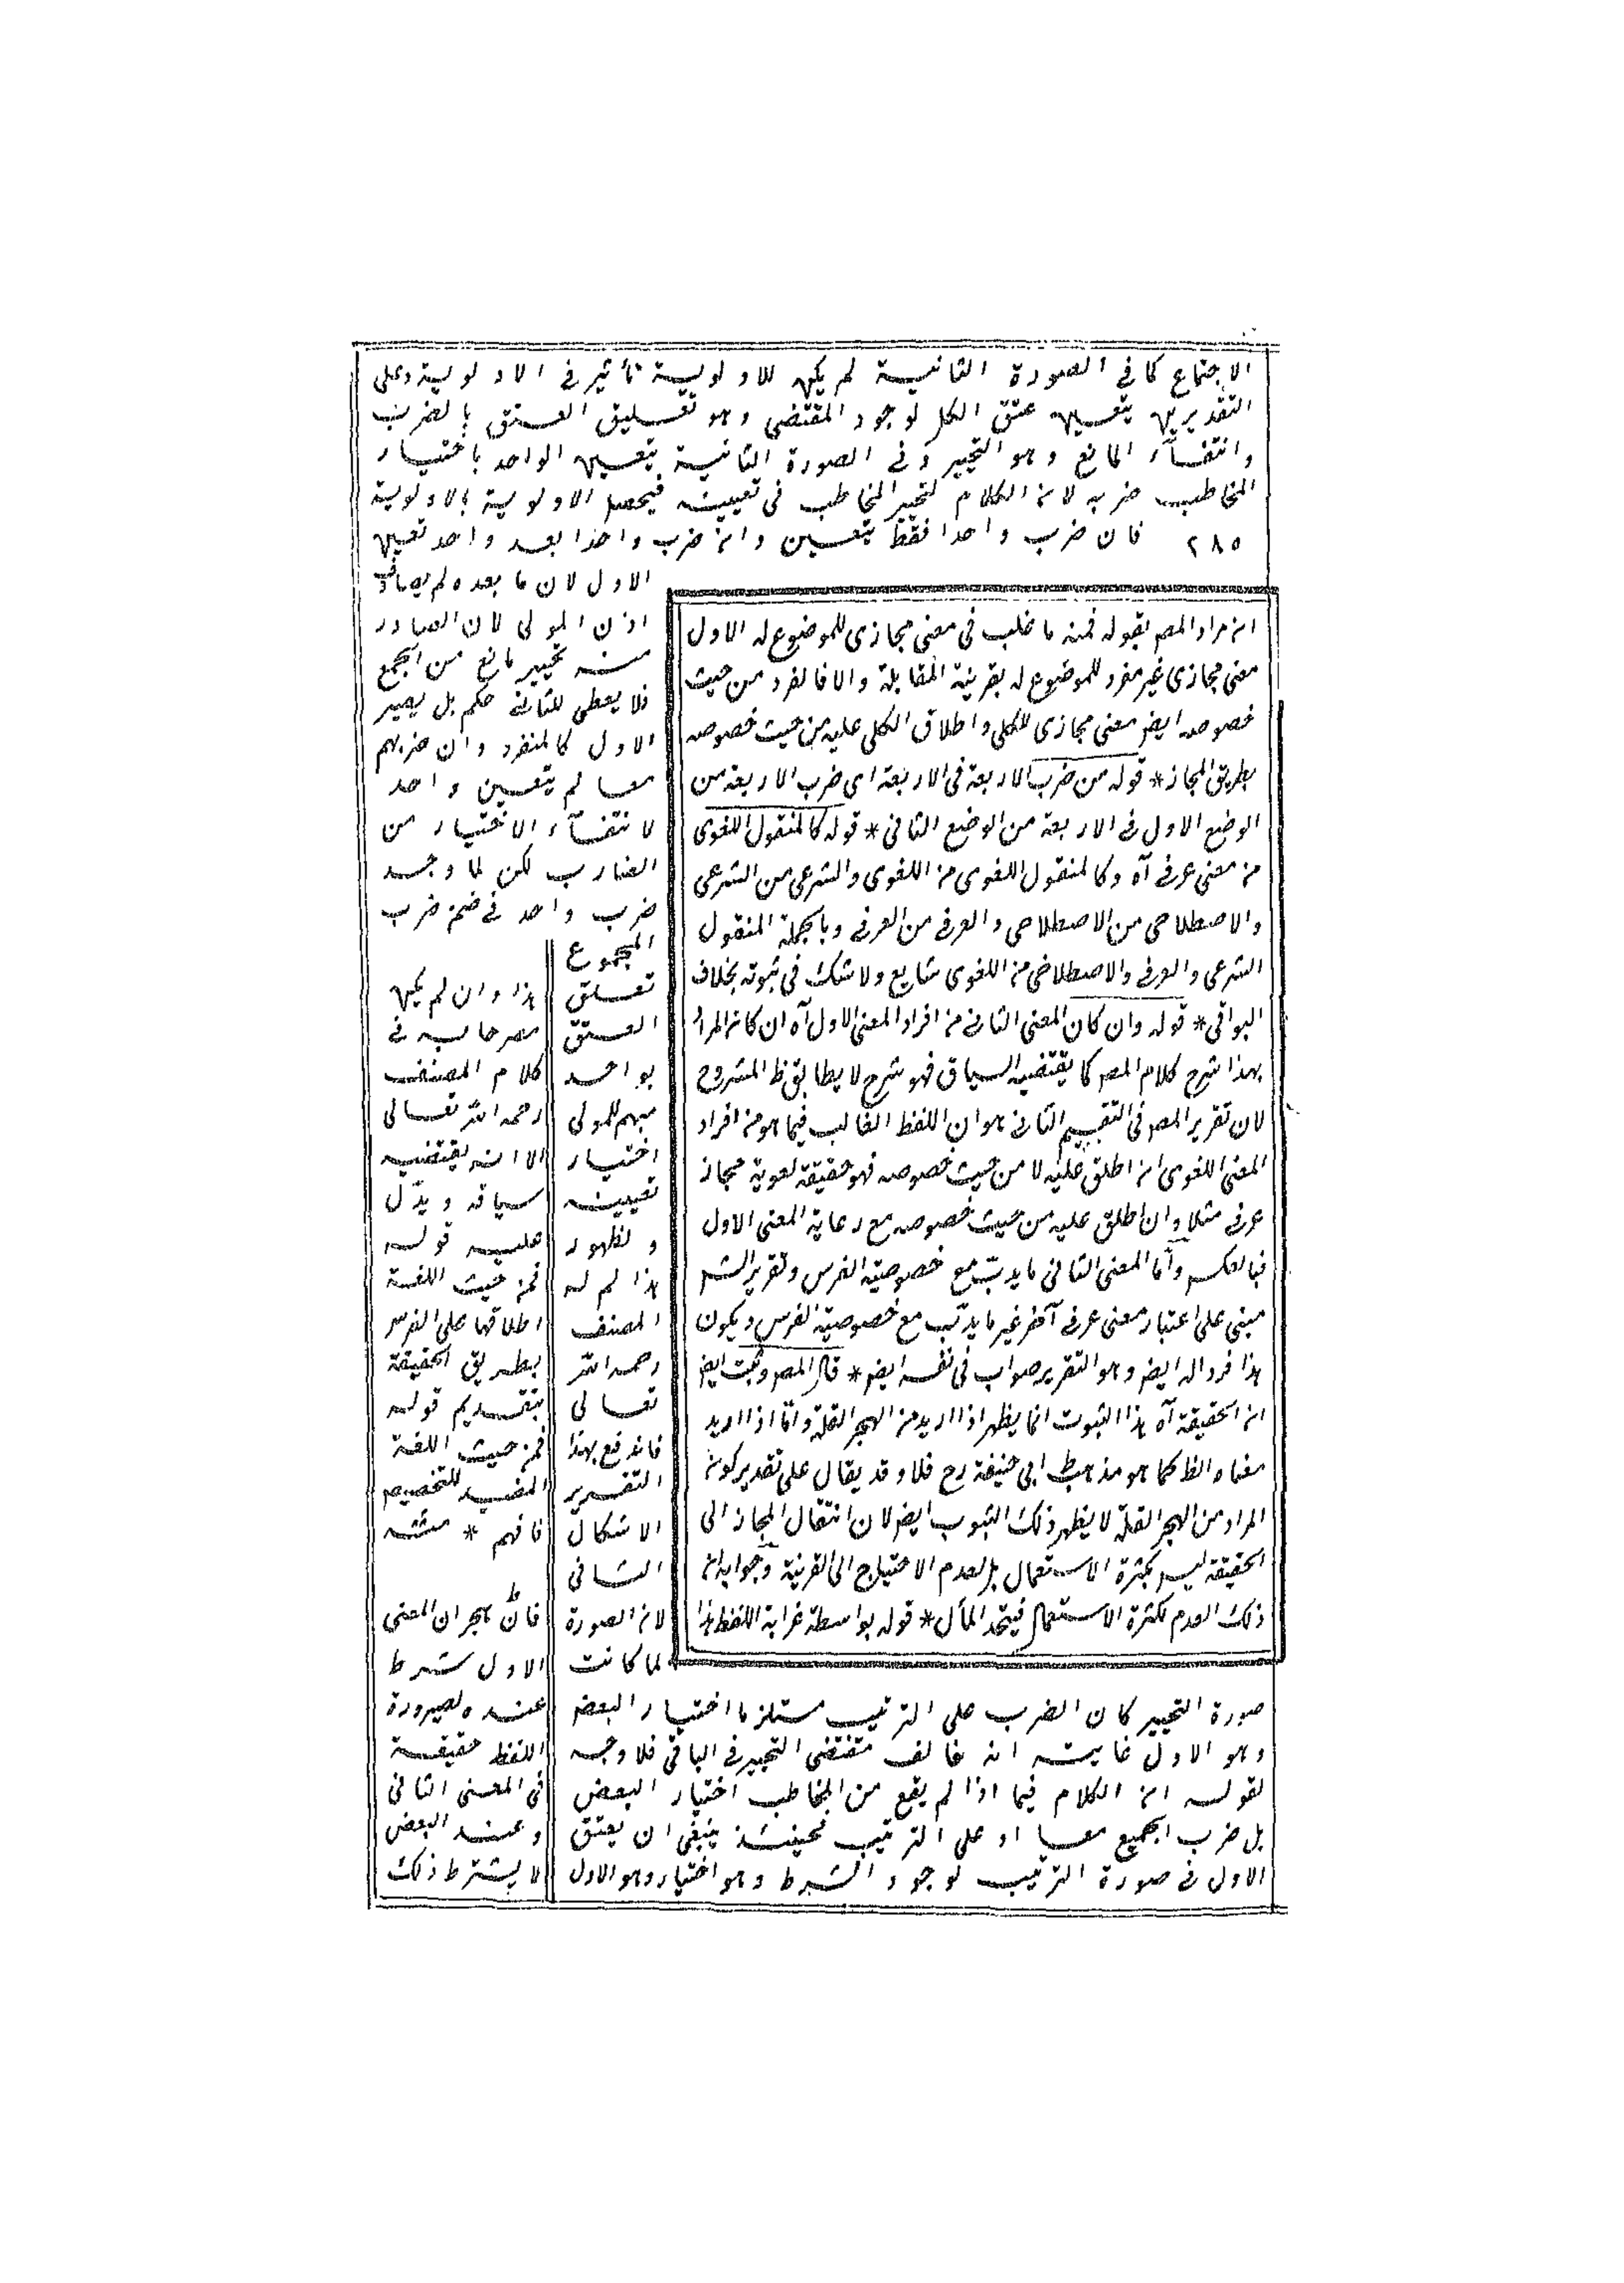 الاجتماع كما فى الصورة الثانية لم يكن للاولوية تأثير فى الاولوية وعلى
التقديرين يتعين عتق الكل لوجود المقتضى وهو تعليق العتق بالضرب
وانتفاء المانع وهو التخيير وفى الصورة الثانية يتعين الواحد باختيار
المخاطب ضربه لان الكلام لتخير المخاطب فى تعيينه فيحصل الاولوية بالاولوية
٢٨٥ فان ضرب واحدا فقط يتعين وان ضرب واحدا بعد واحد تعين
الاول لان ما بعده لم يصادف
اذن المولى لان الصادر
منه تخيير مانع من الجمع
فلا يعطى للثانى حكم بل يصير
الاول كالمنفرد وان ضربهم
معا لم يتعين واحد
لانتفاء الاختيار من
الضارب لكن لما وجد
ضرب واحد فى ضمن ضرب
المجموع
تعلق
العتق
بواحد
مبهم للمولى
اختيار
تعيينه
ولظهور
هذا لم له
المصنف
رحمه الله
تعالى
فاندفع بهذا
التقرير
الاشكال
الثانى
لان الصورة
لما كانت
صورة التخيير كان الضرب على الترتيب مستلزما اختيار البعض
وهو الاول غايته انه خالف مقتضى التخيير فى الباقى فلا وجه
لقوله ان الكلام فيما اذا لم يقع من المخاطب اختيار البعض
بل ضرب الجميع معا او على الترتيب فحينئذ ينبغى ان يعتق
الاول فى صورة الترتيب لوجود الشرط وهو اختياره وهو الاول
ان مراد المص بقوله فمنه ما غلب فى معنى مجازى للموضوع له الاول
معنى مجازى غير مفرد للموضوع له بقرينة المقابلة والا فالفرد من حيث
خصوصه ايض معنى مجازى للكلى واطلاق الكلى عليه من حيث خصوصه
بطريق المجاز * قوله من ضرب الاربعة فى الاربعة اى ضرب الاربعة من
الوضع الاول فى الاربعة من الوضع الثانى * قوله كالمنقول اللغوى
من معنى عرفى آه وكالمنقول اللغوى من اللغوى والشرعى من الشرعى
والاصطلاحى من الاصطلاحى والعرفى من العرفى وبالجملة المنقول
الشرعى والعرفى والاصطلاحى من اللغوى شايع ولا شك فى ثبوته بخلاف
البواقى * قوله وان كان المعنى الثانى من افراد المعنى الاول آه ان كان المراد
بهذا شرح كلام المص كما يقتضيه السياق فهو شرح لا يطابق ظ المشروح
لان تقرير المص فى التقسيم الثانى هو ان اللفظ الغالب فيما هو من افراد
المعنى اللغوى ان اطلق عليه لا من حيث خصوصه فهو حقيقة لغوية مجاز
عرفى مثلا وان اطلق عليه من حيث خصوصه مع رعاية المعنى الاول
فبالعكس واما المعنى الثانى ما يدب مع خصوصية الفرس وتقرير الش
مبنى على اعتبار معنى عرفى آخر غير ما يدب مع خصوصية الفرس ويكون
هذا فردا له ايض وهو التقرير صواب فى نفسه ايض * قال المص وثبت ايض
ان الحقيقة آه هذا الثبوت انما يظهر اذا اريد من الهجر القلة واما اذا اريد
معناه الظ كما هو مذهب ابى حنيفة رح فلا وقد يقال على تقدير كون
المراد من الهجر القلة لا يظهر ذلك الثبوت ايض لان انتقال المجاز الى
الحقيقة ليس بكثرة الاستعمال بل لعدم الاحتياج الى القرينة وجوابه ان
ذلك العدم لكثرة الاستعمال فيتحد المآل * قوله بواسطة غرابة اللفظ هذا
هذا وان لم يكن
مصرحا به فى
كلام المصنف
رحمه الله تعالى
الا انه يقتضيه
سياقه ويدل
عليه قوله
فمن حيث اللغة
اطلاقها على الفرس
بطريق الحقيقة
بتقديم قوله
فمن حيث اللغة
المفيد للتخصيص
فافهم * مثله
فان هجران المعنى
الاول شرط
عنده لصيرورة
اللفظ حقيقة
فى المعنى الثانى
وعند البعض
لا يشترط ذلك